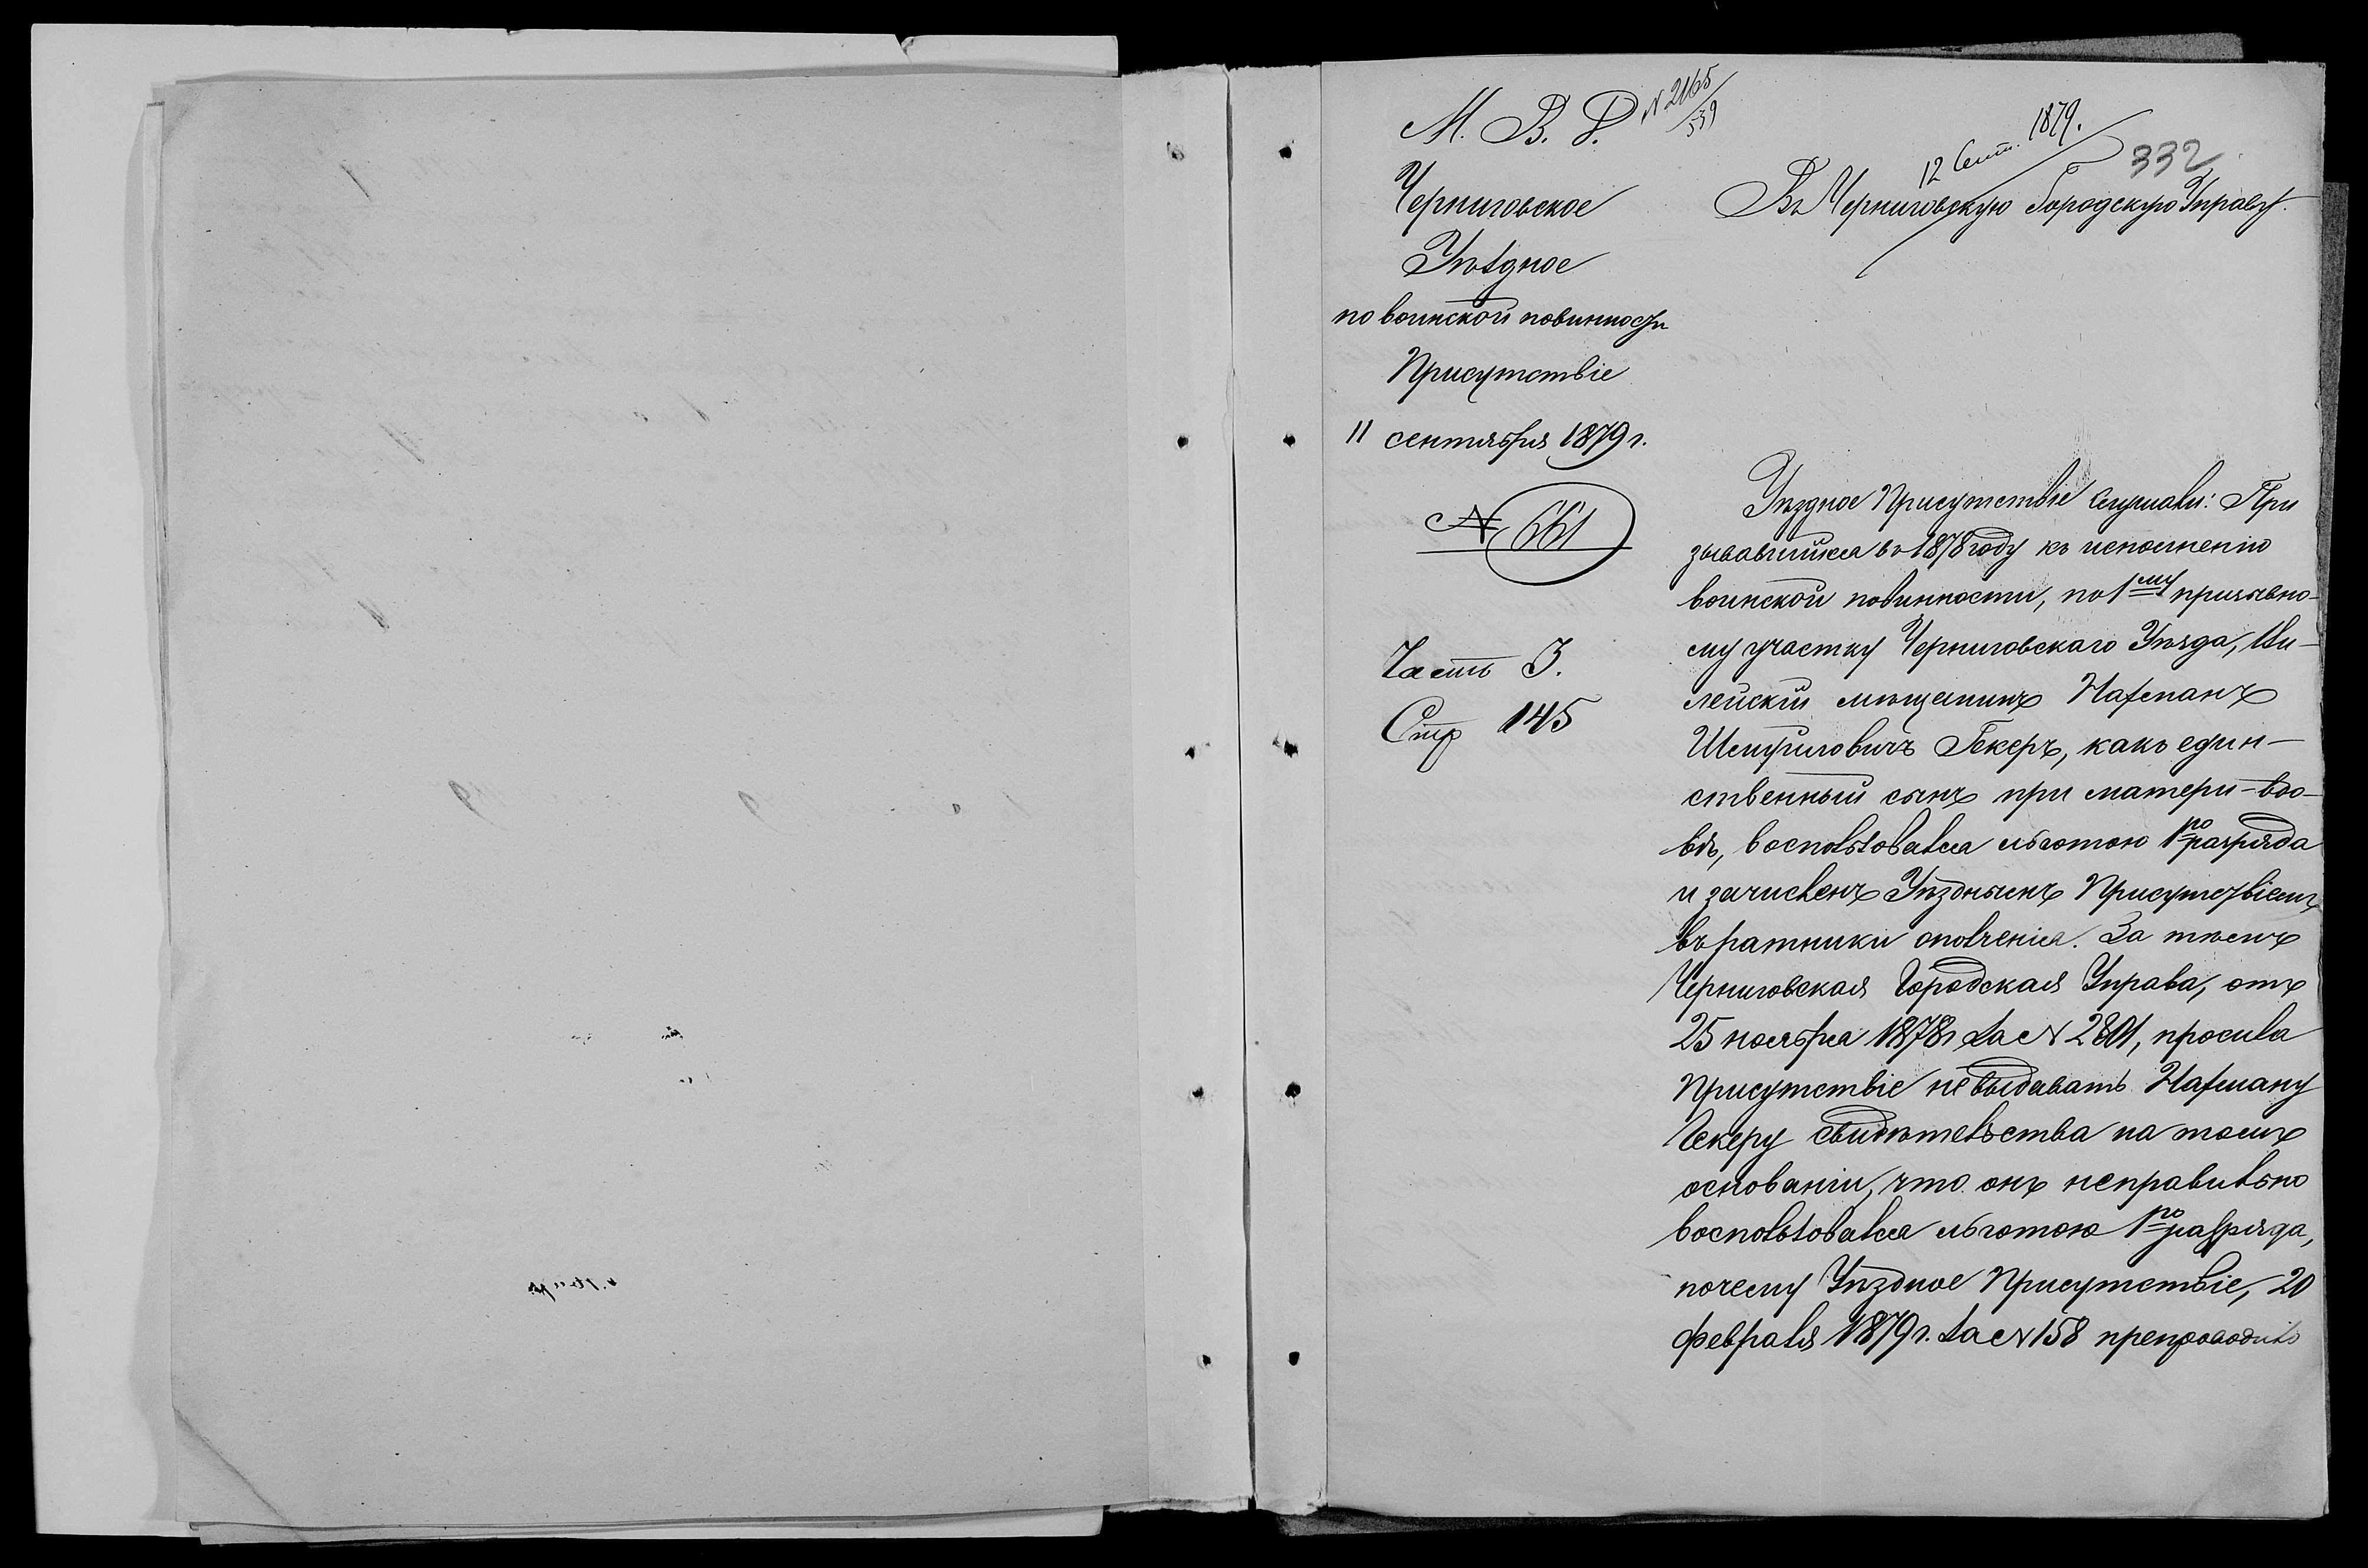 М. В. Д.
№ 2165/539
Черниговское
Уѣздное
по воинской повинности
Присутствіе
11 сентября 1879 г.
№ 661
Часть 3.
Стр 145
12 Сент. 1879.
332
Въ Черниговскую Городскую Управу.
Уѣздное Присутствіе слушали: При
зывавшійся въ 1878 году къ исполненію
воинской повинности, по 1му призывно-
му участку Черниговскаго Уѣзда,
мѣщанинъ Нахманъ
Гекеръ, какъ един-
ственный сынъ при матери-вдо-
вѣ, воспользовался льготою 1го разряда
и зачисленъ Уѣзднымъ Присутствіемъ
въ ратники ополченія. За тѣмъ
Черниговская Городская Управа, отъ
25 ноября 1878 г. за № 2801, просила
Присутствіе не выдавать Нахману
Гекеру свидѣтельства на томъ
основаніи, что онъ неправильно
воспользовался льготою 1го разряда,
почему Уѣздное Присутствіе, 20
февраля 1879 г. за № 158 препроводило